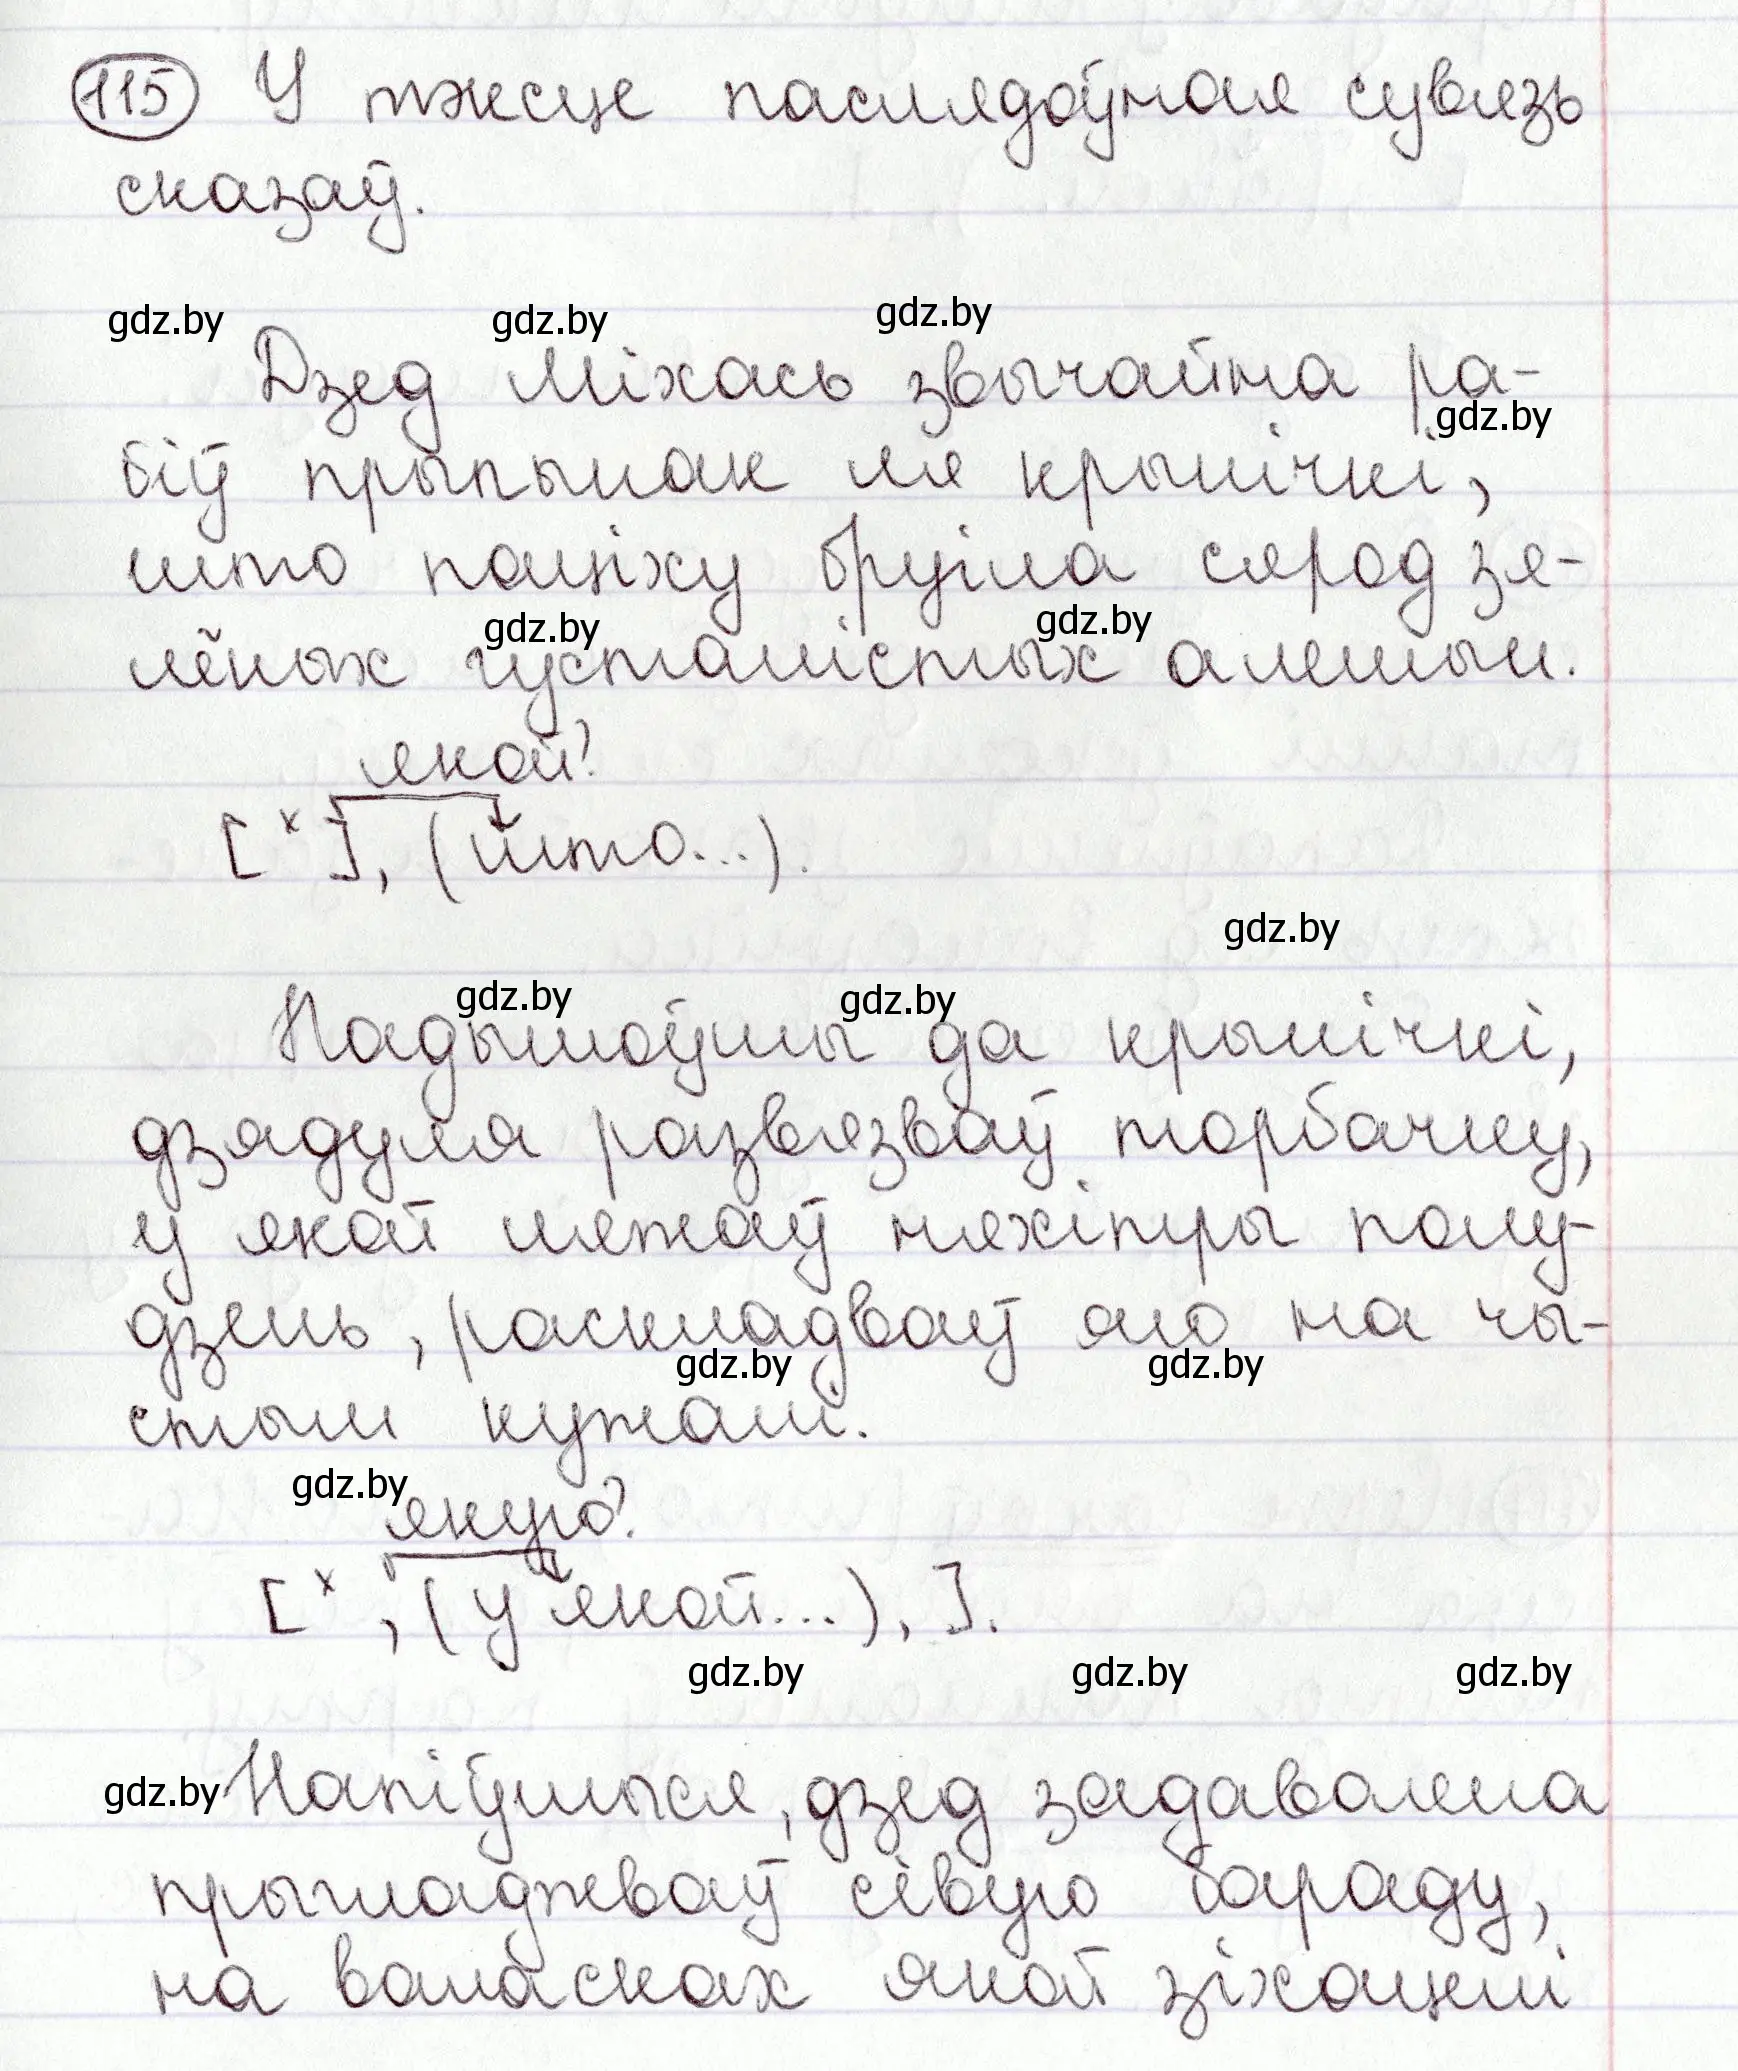 115 У тэксце паслядоўная сувязь
сказаў.
gdz.by gdz.by gdz.by
Дзед Міхась звычайна ра-
gdz.by
біў прыпынак ля крынічкі,
што паціху бруіла сярод зя-
gdz.by gdz.by
лёных густалістых алешын.
якой?
[ x ], (што...).
gdz.by
gdz.by gdz.by
Падышоўшы да крынічкі,
дзядуля развязваў торбачку,
у якой ляжаў няхітры полу-
дзень, раскладваў яго на чы-
gdz.by gdz.by
стым кужалі.
gdz.by
якую?
[ x , (у якой...), ].
gdz.by gdz.by gdz.by
gdz.by Напіўшыся, дзед задаволена
прыгладжваў сівую бараду,
на валасках якой зіхацелі